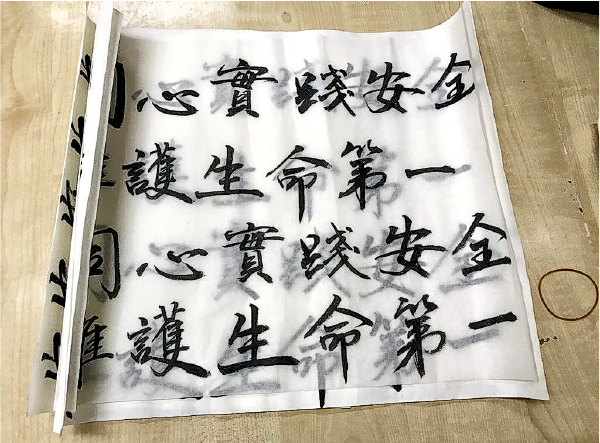 同心實踐安全
維護生命第一
同心實踐安全
維護生命第一